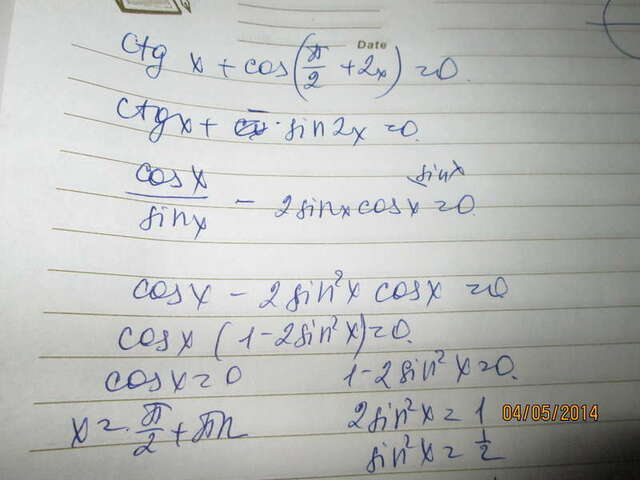 Date
ctg x + cos(π/2 + 2x) = 0.
ctgx + - sin2x = 0.
cosx/sinx - 2sinxcosx = 0
sinx
cosx - 2sin²x cosx = 0
cosx (1-2sin²x)=0.
cosx=0 1-2sin²x=0.
x = π/2 + πn 2sin²x = 1
sin²x = 1/2
04/05/2014